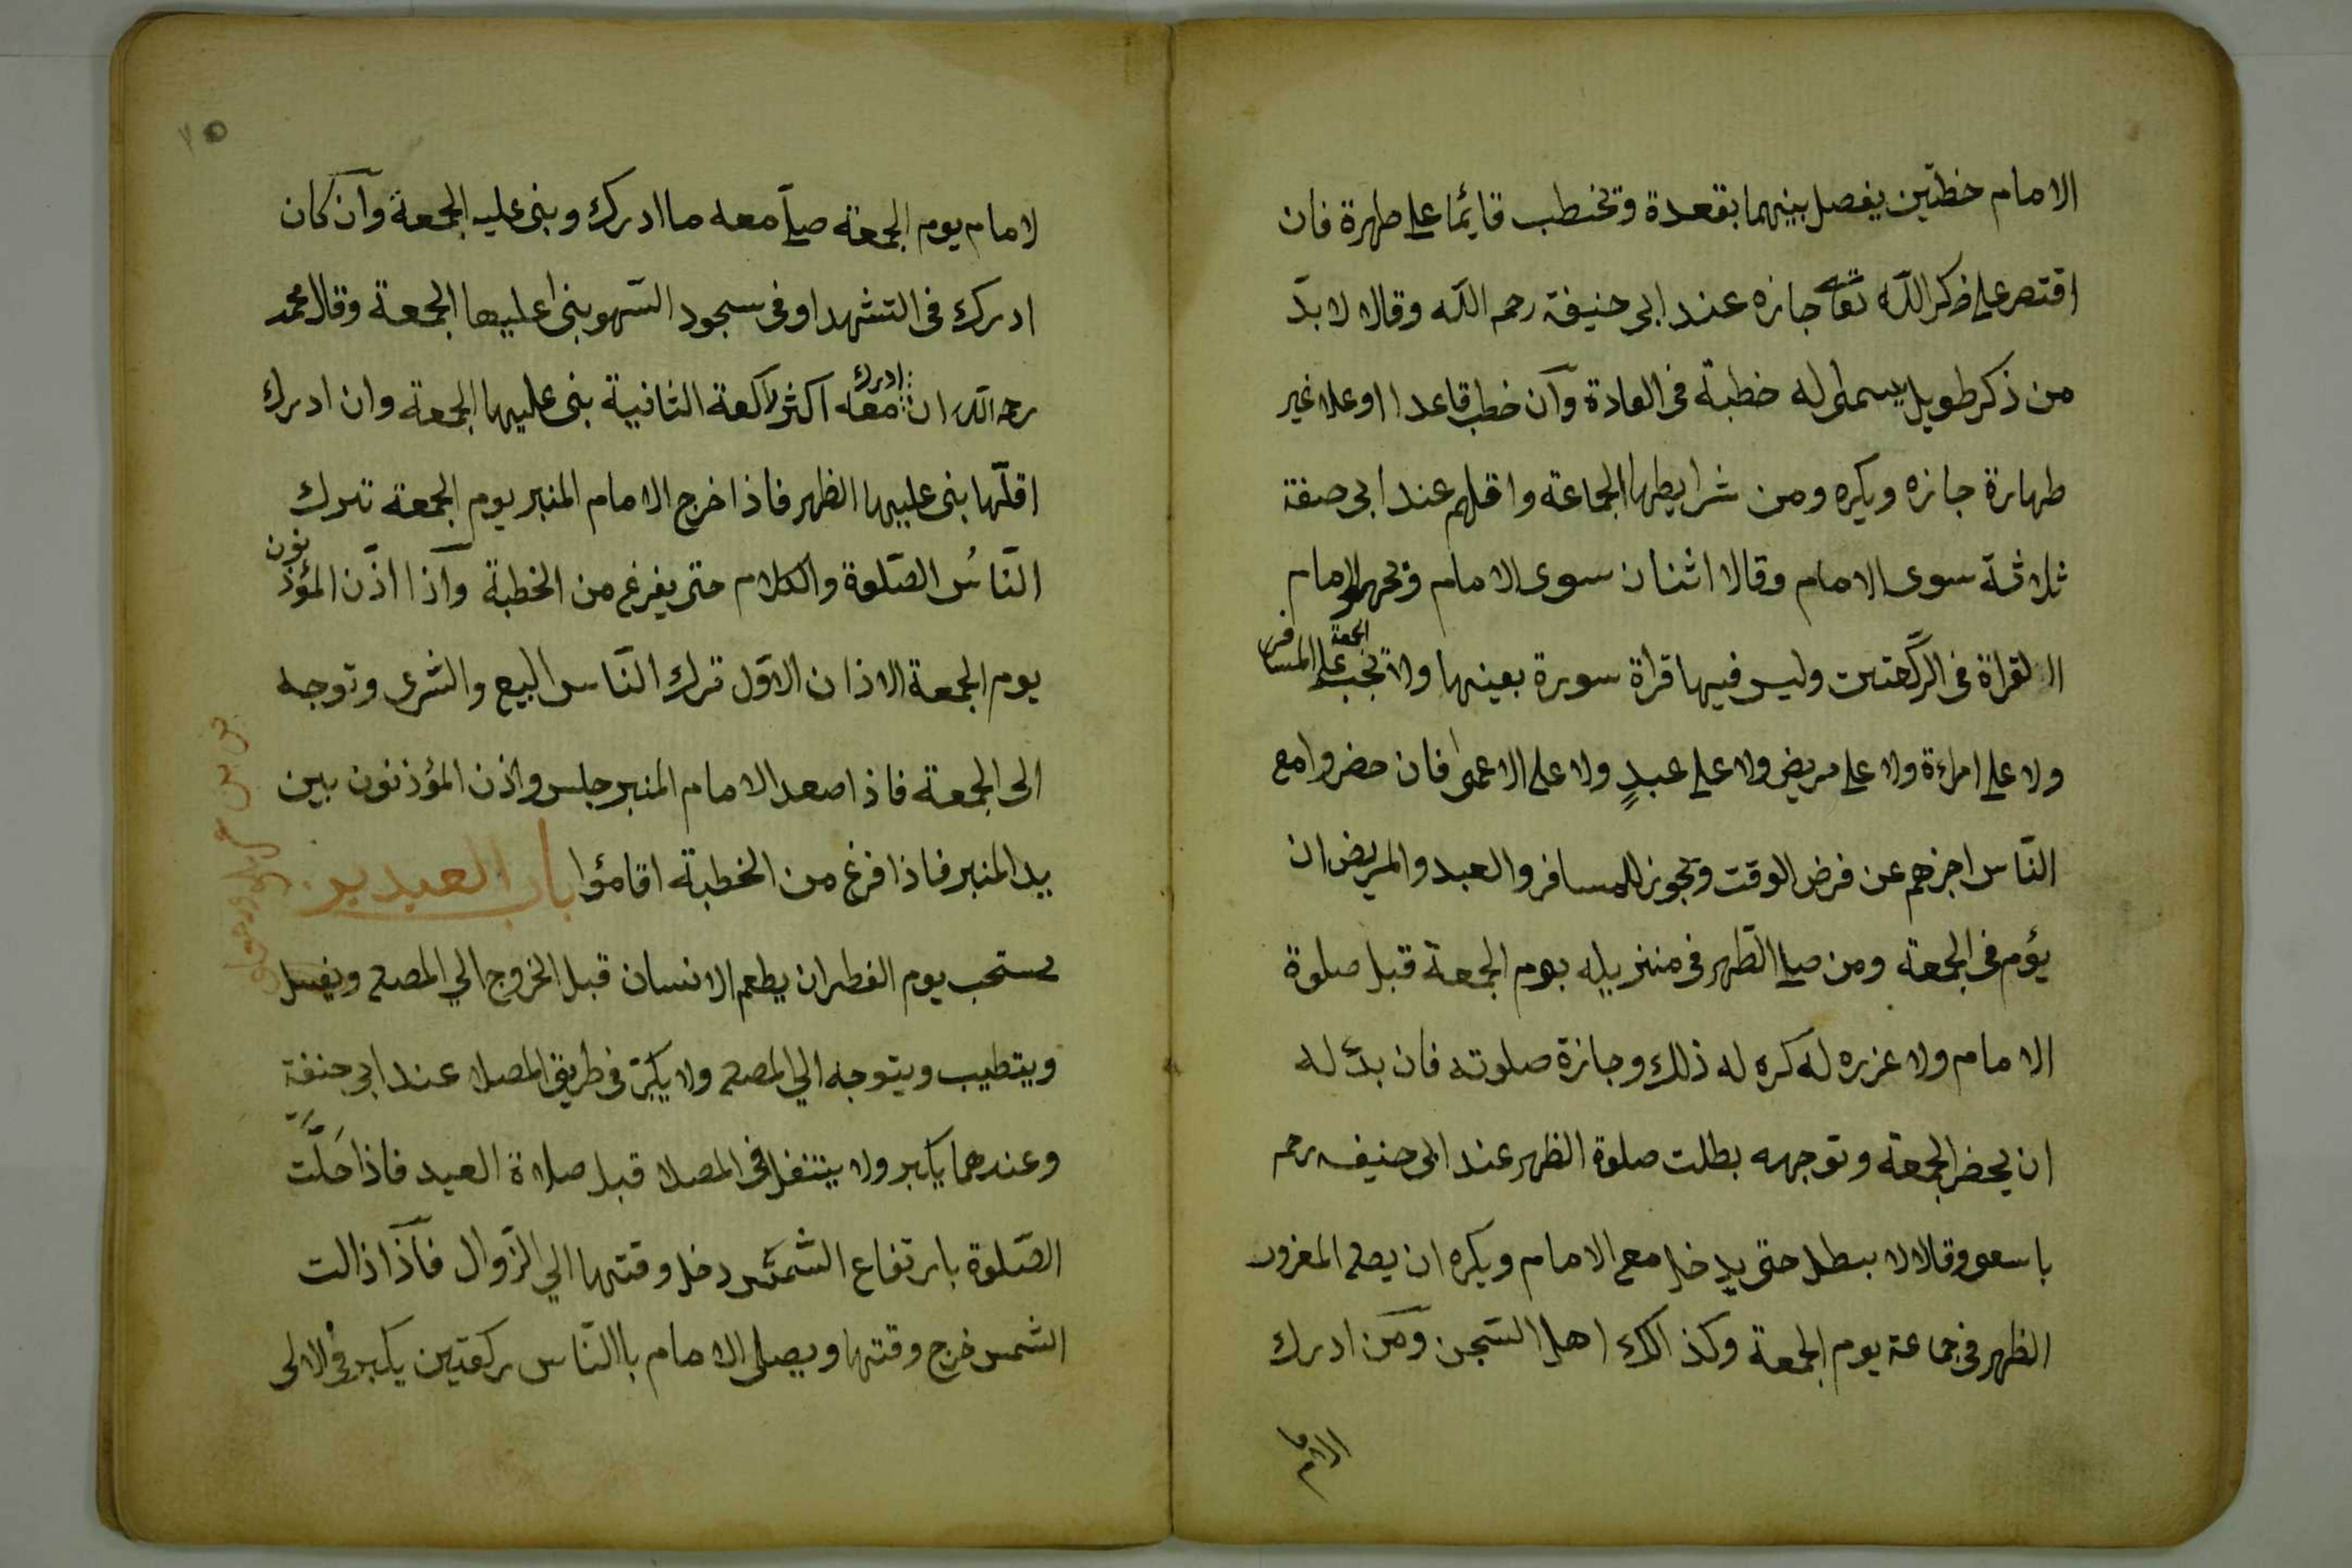 الامام خطتين يفصل بينهما بقعدة وتخطب قائما على طهرة فان
اقتصر على ذكر اللّه تعالى جازه عند ابى حنيفة رحمه اللّه وقالا لا بدّ
من ذكر طويل يسمى له خطبة فى العادة وان خطب قاعدا او علا غير
طهارة جازه ويكره ومن شرايطها الجماعة واقلهم عند ابى صفة
ثلاثة سوى الامام وقالا اثنان سوى الامام وتجهر الامام
القراة فى الركعتين وليس فيها قراة سورة بعينها ولا تجب الجمعة على المسافر
ولا على امراءة ولا على مريض ولا على عبدٍ ولا على الاعمى فان حضروا مع
النّاس اجزهم عن فرض الوقت وتجوز للمسافر والعبد والمريض ان
يؤم فى الجمعة ومن صلى الظّهر فى منزيله يوم الجمعة قبل صلوة
الامام ولا عزره له كره له ذلك وجازة صلوته فان بدّ له
ان يحضر الجمعة وتوجهه بطلت صلوة الظهر عند ابى حنيفه رحم
باسعى وقالا لا ببطل حتى يدخل مع الامام ويكره ان يصلى المعزور
الظهر فى جماعة يوم الجمعة وكذ الك اهل السّجن ومن ادرك
الامام
١٥
لامام يوم الجمعة صلى معه ما ادرك وبنى عليه الجمعة وان كان
ادرك فى التشهد او فى سجود السّهو بنى اعليها الجمعة وقال محمد
رحمه اللّه ان ادرك معه اكثر لركعة الثانية بنى عليها الجمعة وان ادرك
اقلّها بنى عليها الظهر فاذا خرج الامام المنبر يوم الجمعة تدرك
النّاسُ الصّلوة والكلام حتى يفرغ من الخطبة واذا اذّن المؤذنون
يوم الجمعة الاذان الاوّل ترك النّاس البيع والشرى وتوجه
الى الجمعة فاذا صعد الامام المنبر جلس واذن المؤذنون بين
يد المنبر فاذا فرغ من الخطبة اقامؤا باب العيدين
يستحب يوم الفطر ان يطعم الانسان قبل الخروج الي المصلى ويغسل
ويتطيب ويتوجه الي المصلى ولا يكبّر فى طريق المصلا عند ابي حنفة
وعندهما يكبر ولا يتنفل فى المصلا قبل صلاة العيد فاذا حَلّت
الصّلوة بارتفاع الشّمس دخل وقتها الي الزّوال فاذا ذالت
الشمس خرج وقتها ويصلى الامام باالنّاس ركعتين يكبر فى الالى